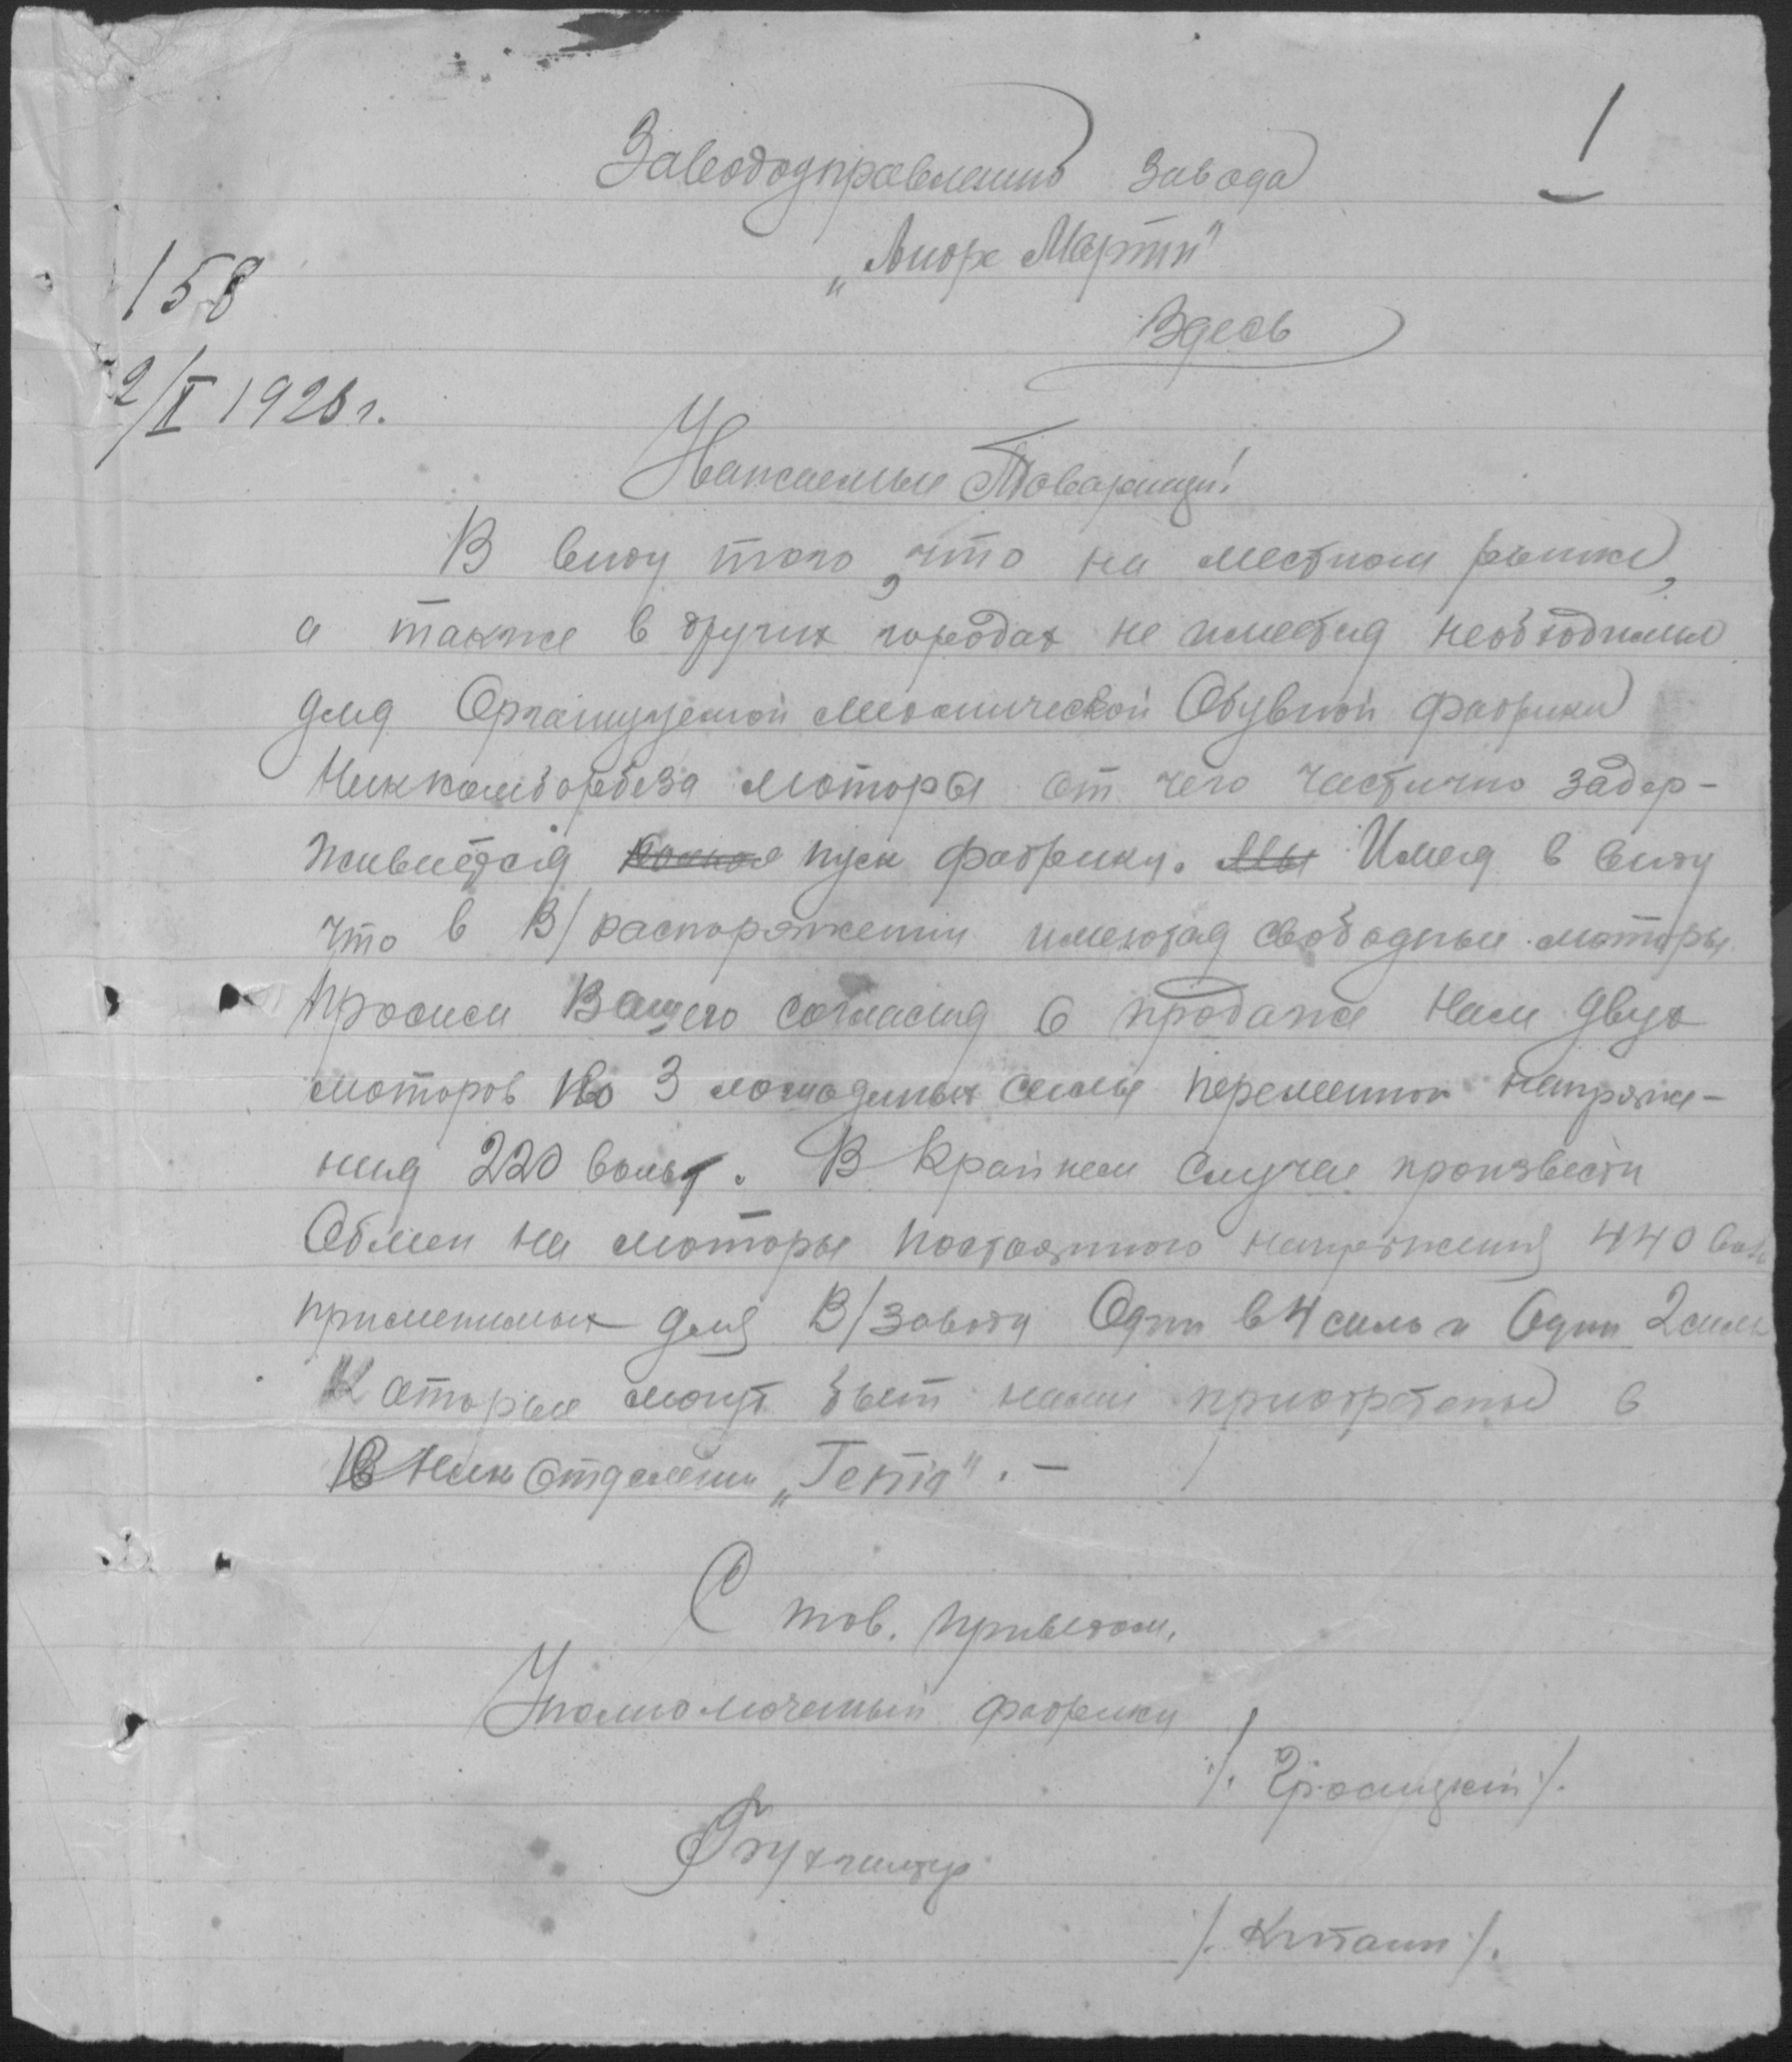 1
Заводоуправлению Завода
„Андре Марти"
Здесь
158
2/X 1928 г.
Уважаемые Товарищи!
В виду того, что на местном рынке,
а также в других городах не имеется необходимые
для Организуемой Механической Обувной фабрики
моторы от чего частично задер-
живается пуск фабрики. Имея в виду
что в В/распоряжении имеются свободные моторы
просим Вашего согласия о продаже нам двух
моторов по 3 лошадиных силы переменного напряже-
ния 220 вольт. В крайнем случае произвести
Обмен на моторы постоянного напряжения 440 воль
применимых для В/заводу Один в 4 силы и Один 2 силы
Которые могут быт нами приобретены в
Ник Отделении „Гэта". —
С тов. приветом.
Уполномоченный фабрики
Бухгалтер